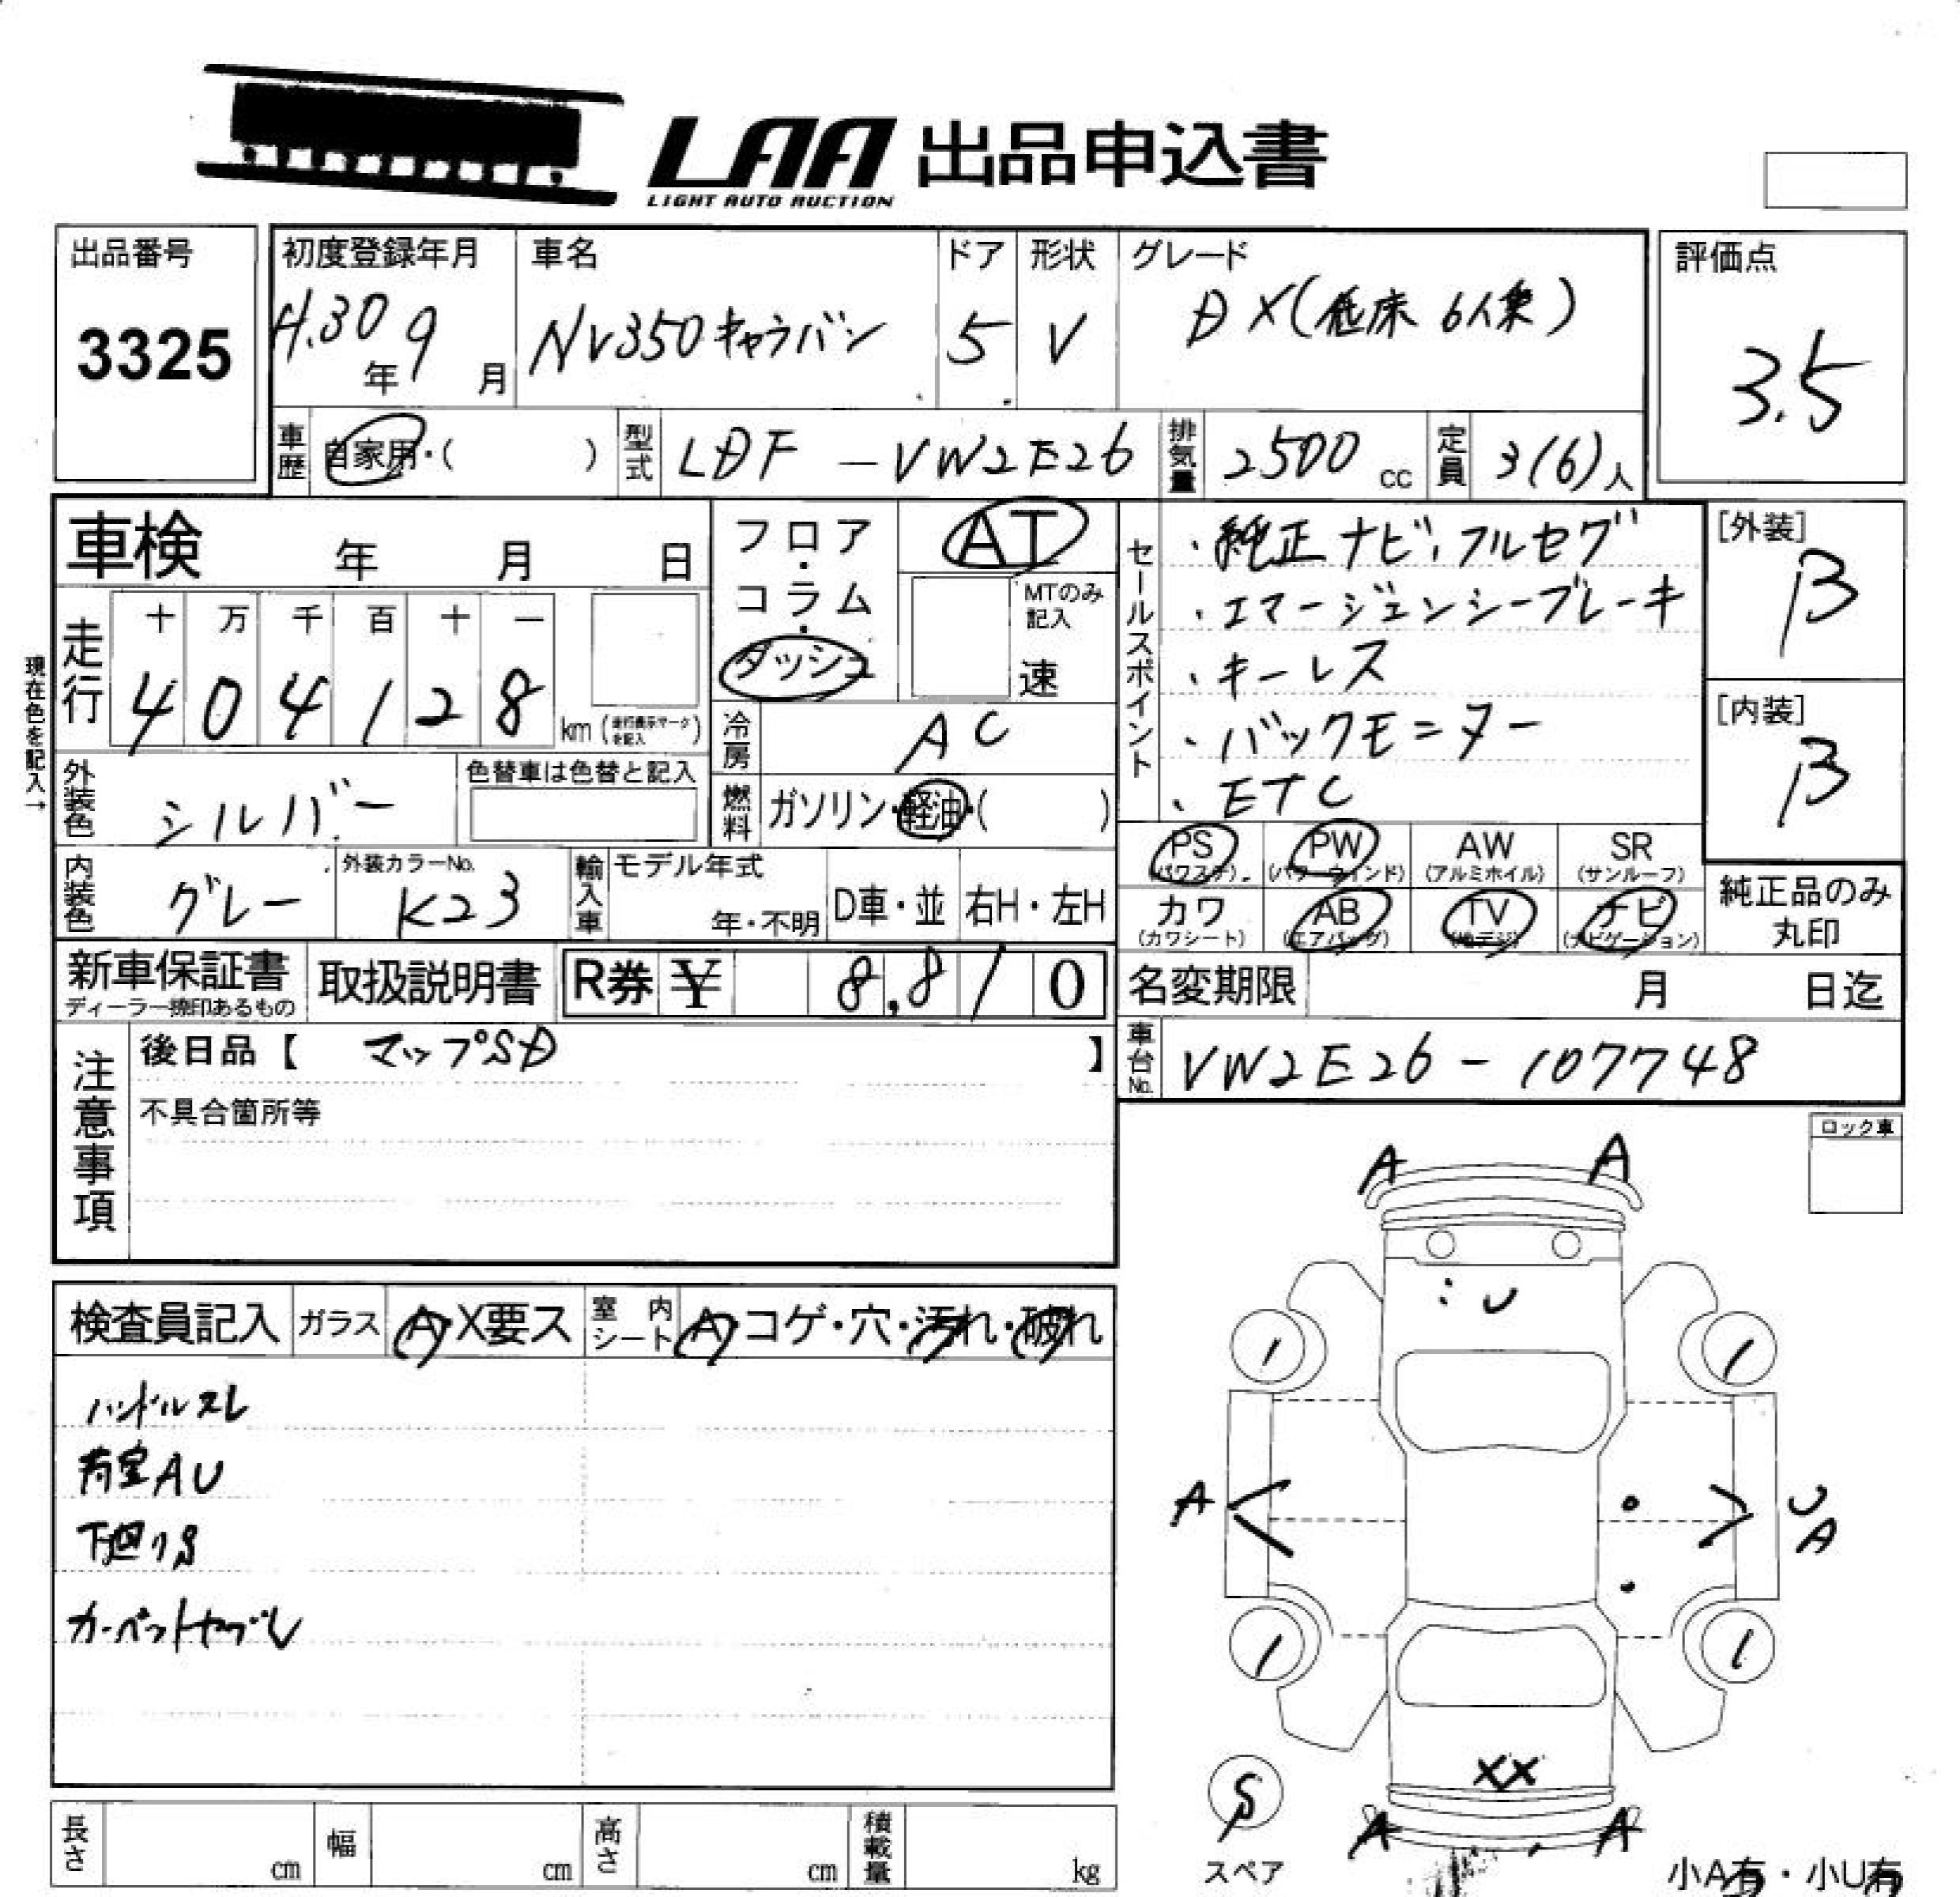 LAA 出品申込書
LIGHT AUTO AUCTION
出品番号
3325
初度登録年月
H.30年 9月
車名
NV350キャラバン
ドア
5
形状
V
グレード
DX(低床 6人乗)
評価点
3.5
車歴 自家用・( )
型式 LDF-VW2E26
排気量 2500 cc
定員 3(6)人
車検 年 月 日
現在色を記入→
走行 十 万 千 百 十 一
4 0 4 1 2 8 km (走行表示マークを記入)
フロア・コラム・ダッシュ
AT
MTのみ記入
速
冷房 AC
燃料 ガソリン・軽油・( )
外装色 シルバー
色替車は色替と記入
内装色 グレー
外装カラーNo. K23
輸入車 モデル年式 年・不明 D車・並 右H・左H
セールスポイント
・純正ナビ,フルセグ
・エマージェンシーブレーキ
・キーレス
・バックモニター
・ETC
[外装]
B
[内装]
B
PS (パワステ) PW (パワーウインド) AW (アルミホイル) SR (サンルーフ)
カワ (カワシート) AB (エアバッグ) TV (地デジ) ナビ (ナビゲーション)
純正品のみ丸印
新車保証書
ディーラー捺印あるもの
取扱説明書
R券 ¥ 8,810
名変期限 月 日迄
車台No. VW2E26-107748
注意事項
後日品【 マップSD 】
不具合箇所等
ロック車
検査員記入 ガラス A・X要ス 室内シート A・コゲ・穴・汚れ・破れ
ハンドルスレ
荷室AU
下廻りS
カーペットヤブレ
A A
U
1 1
A U
A
1 1
XX
S
スペア
A A
小A有・小U有
長さ cm 幅 cm 高さ cm 積載量 kg